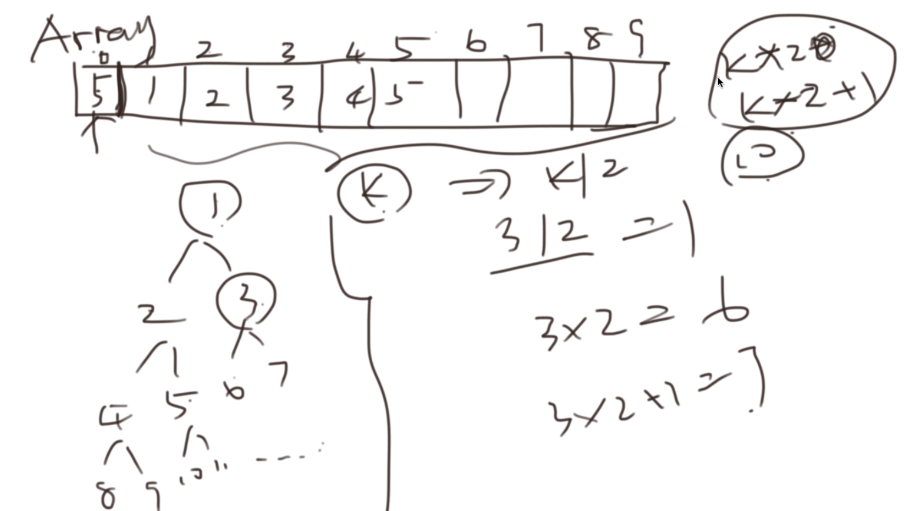 Array
0 1 2 3 4 5 6 7 8 9
5 1 2 3 4 5
K*2
K*2+1
10
K => K/2
3/2 = 1
3×2 = 6
3×2+1 = 7
1
2 3
4 5 6 7
8 9 10 11 ----..